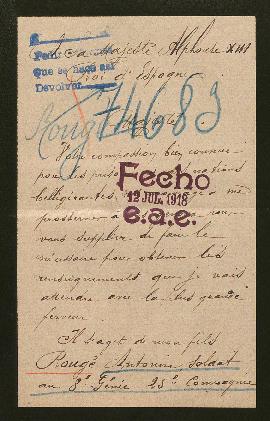 A Sa Majesté Alphonse XIII
Roi d'Espagne
Pedir
Que se hace así
Devolver
Rougé 74683
Majesté
Votre compassion bien connue
pour les
belligérantes,
prosterner à
vous supplier de faire le
nécessaire pour obtenir les
renseignements que je vais
attendre avec la plus grande
ferveur.
Fecho
12 JUL. 1918
e.a.e.
Il s'agit de mon fils
Rougé Antonin soldat
au 8e Génie 25e Compagnie